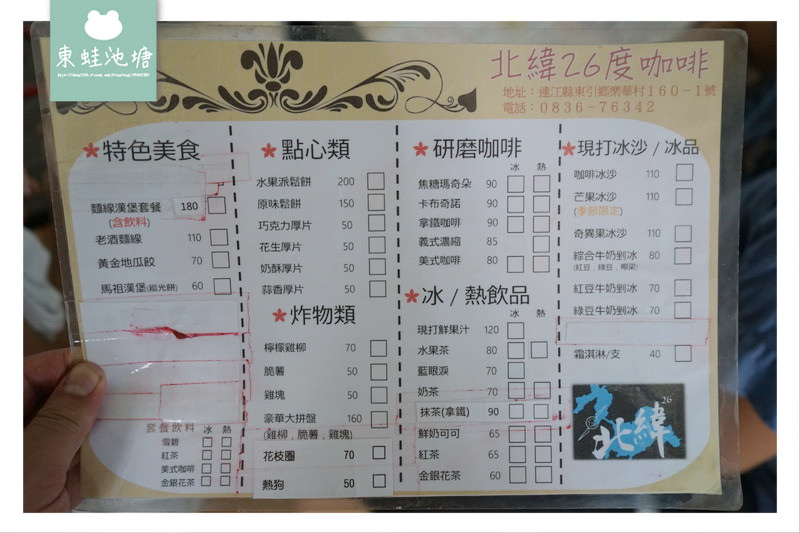 東蛙池塘
北緯26度咖啡
地址：連江縣東引鄉樂華村160-1號
電話：0836-76342
特色美食
麵線漢堡套餐 180
(含飲料)
老酒麵線 110
黃金地瓜餃 70
馬祖漢堡(繼光餅) 60
套餐飲料 冰 熱
雪碧
紅茶
美式咖啡
金銀花茶
點心類
水果派鬆餅 200
原味鬆餅 150
巧克力厚片 50
花生厚片 50
奶酥厚片 50
蒜香厚片 50
炸物類
檸檬雞柳 70
脆薯 50
雞塊 50
豪華大拼盤 160
(雞柳，脆薯，雞塊)
花枝圈 70
熱狗 50
研磨咖啡
冰 熱
焦糖瑪奇朵 90
卡布奇諾 90
拿鐵咖啡 90
義式濃縮 85
美式咖啡 80
冰 / 熱飲品
冰 熱
現打鮮果汁 120
水果茶 80
藍眼淚 70
奶茶 70
抹茶(拿鐵) 90
鮮奶可可 65
紅茶 65
金銀花茶 60
現打冰沙 / 冰品
咖啡冰沙 110
芒果冰沙 110
(季節限定)
奇異果冰沙 110
綜合牛奶剉冰 80
(紅豆，綠豆，椰果)
紅豆牛奶剉冰 70
綠豆牛奶剉冰 70
霜淇淋/支 40
26
北緯